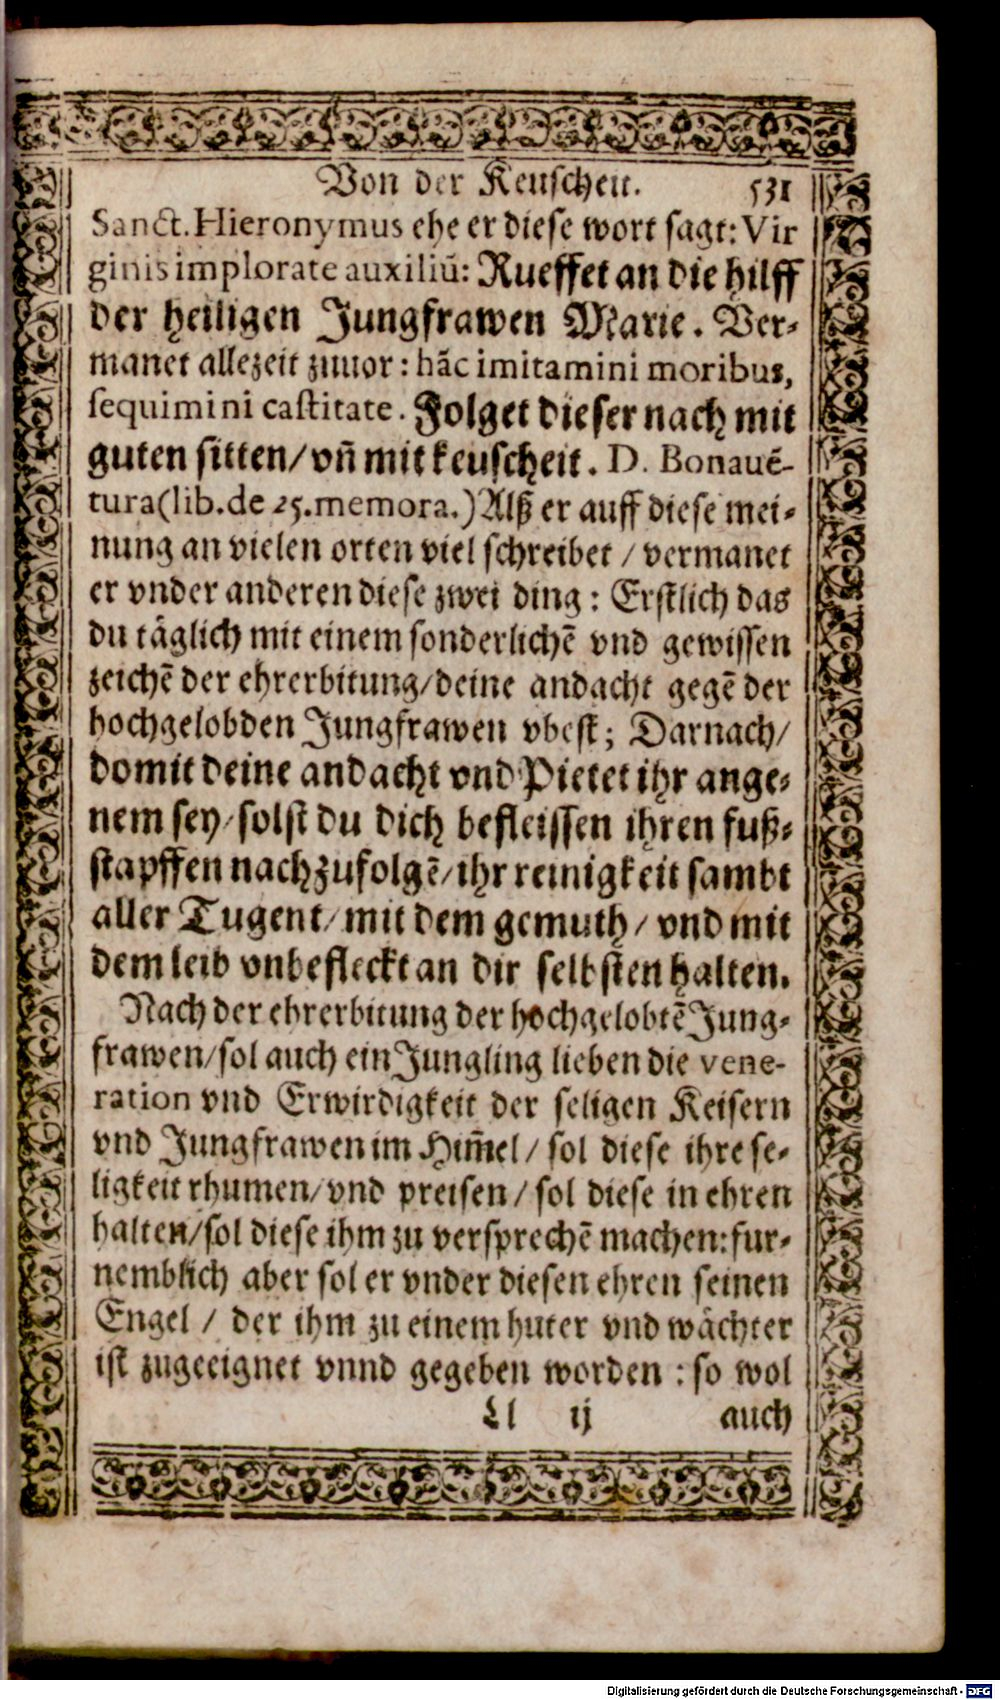 Von der Keuscheit. 531
Sanct. Hieronymus ehe er diese wort sagt: Vir
ginis implorate auxiliū: Rueffet an die hilff
der heiligen Jungfrawen Marie. Ver-
manet allezeit zuuor: hāc imitamini moribus,
sequimini castitate. Folget dieser nach mit
guten sitten/ vn̄ mit keuscheit. D. Bonauē-
tura (lib. de 25. memora.) Alß er auff diese mei-
nung an vielen orten viel schreibet / vermanet
er vnder anderen diese zwei ding: Erstlich das
du täglich mit einem sonderlichē vnd gewissen
zeichē der ehrerbitung/ deine andacht gegē der
hochgelobden Jungfrawen vbest; Darnach/
domit deine andacht vnd Pietet ihr ange-
nem sey/ solst du dich befleissen ihren fuß-
stapffen nachzufolgē/ ihr reinigkeit sambt
aller Tugent/ mit dem gemuth/ vnd mit
dem leib vnbefleckt an dir selbsten halten.
Nach der ehrerbitung der hochgelobtē Jung-
frawen/ sol auch ein Jungling lieben die vene-
ration vnd Erwirdigkeit der seligen Keisern
vnd Jungfrawen im Him̄el / sol diese ihre se-
ligkeit rhumen/ vnd preisen/ sol diese in ehren
halten/ sol diese ihm zu versprechē machen: fur-
nemblich aber sol er vnder diesen ehren seinen
Engel / der ihm zu einem huter vnd wächter
ist zugeeignet vnnd gegeben worden: so wol
Ll ij auch
Digitalisierung gefördert durch die Deutsche Forschungsgemeinschaft - DFG